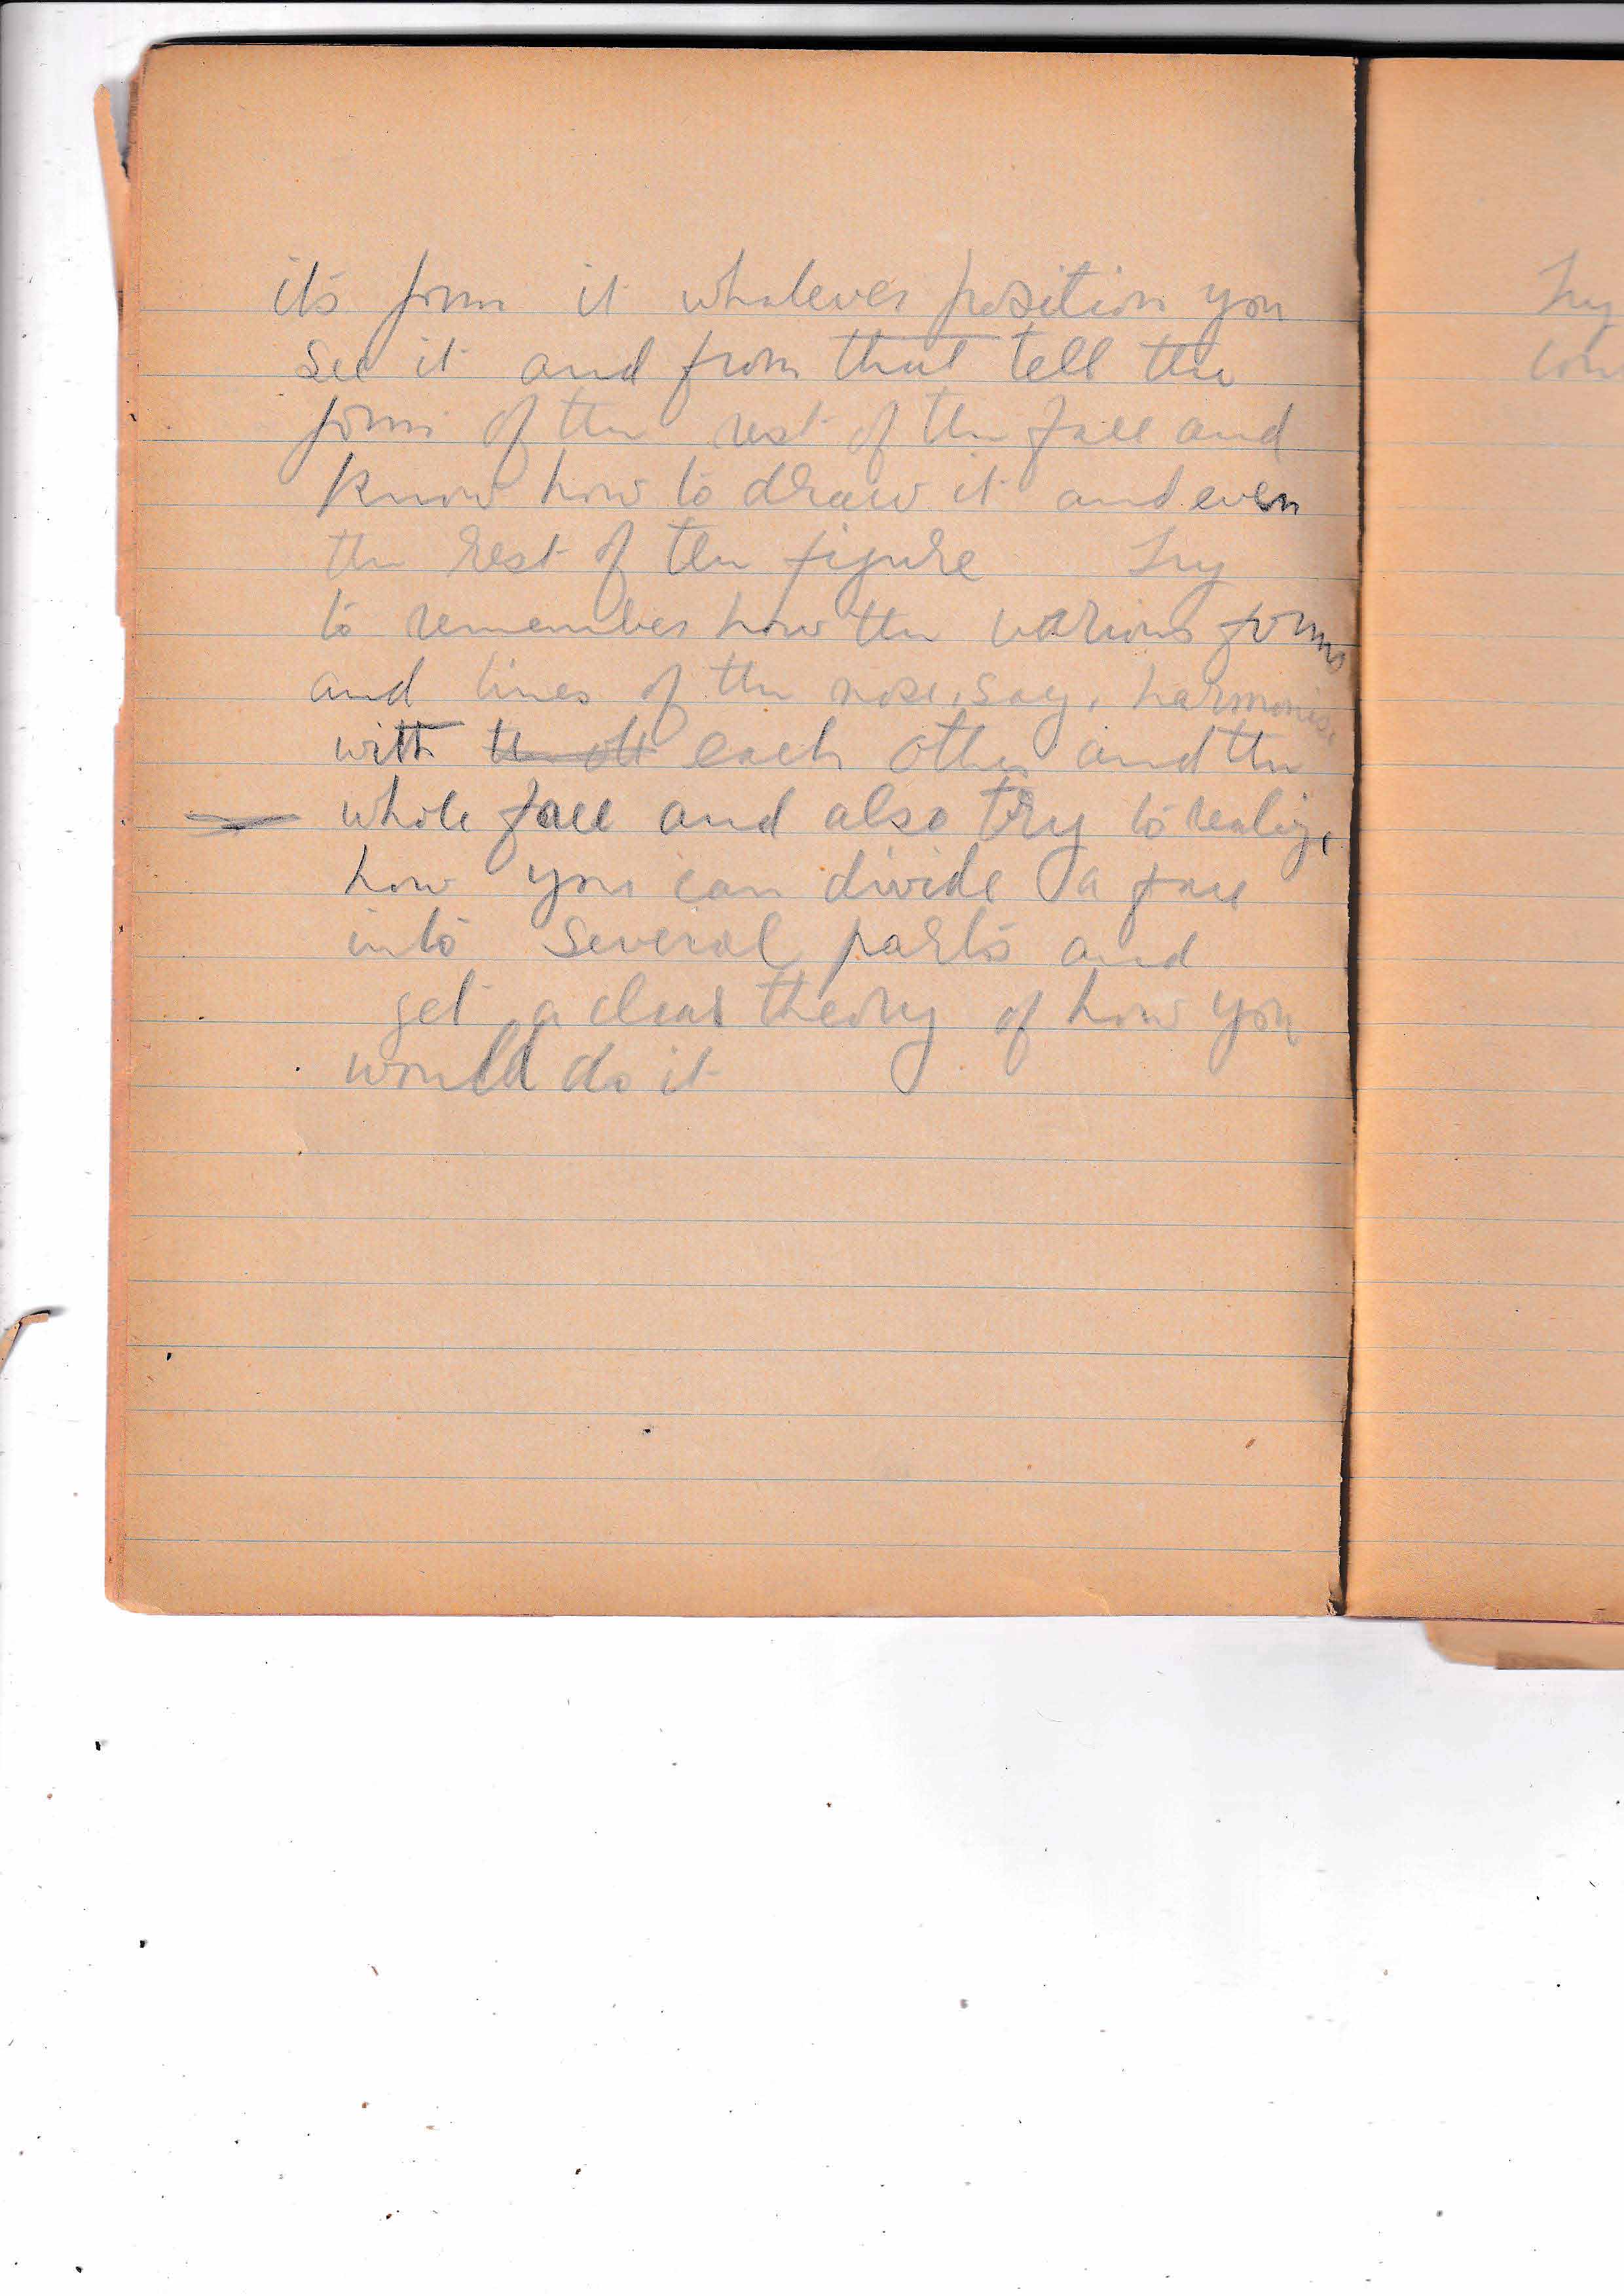 its form it whatever position you
see it and from that tell the
form of the rest of the face and
know how to draw it and even
the rest of the figure Try
to remember how the various forms
and lines of the nose, say, harmonise
with the oth each other and the
whole face and also try to realize
how you can divide a face
into several parts and
get a clear theory of how you
would do it
Try